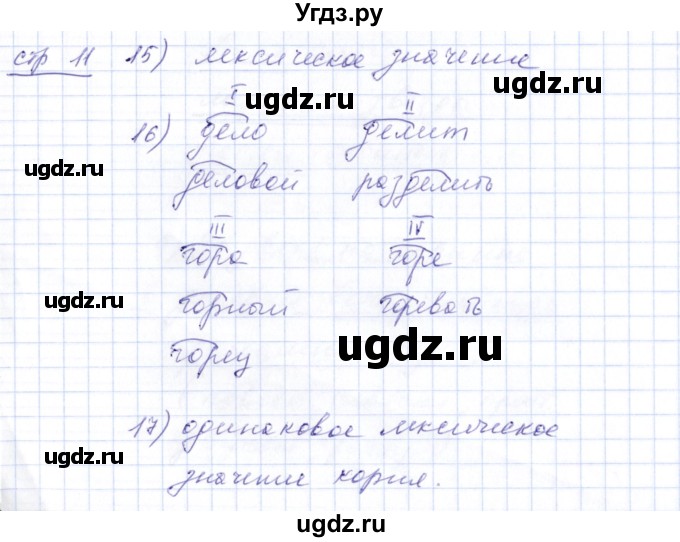 Угдз.ру
стр 11 15) лексическое значение
ugdz.ru
I II
ugdz.ru
16) дело делит
ugdz.ru
деловой разделить
ugdz.ru
III IV
гора горе
ugdz.ru
ugdz.ru
горный горевать
ugdz.ru
горец
17) одинаковое лексическое
ugdz.ru
ugdz.ru
значение корня.
ugdz.ru
ugdz.ru